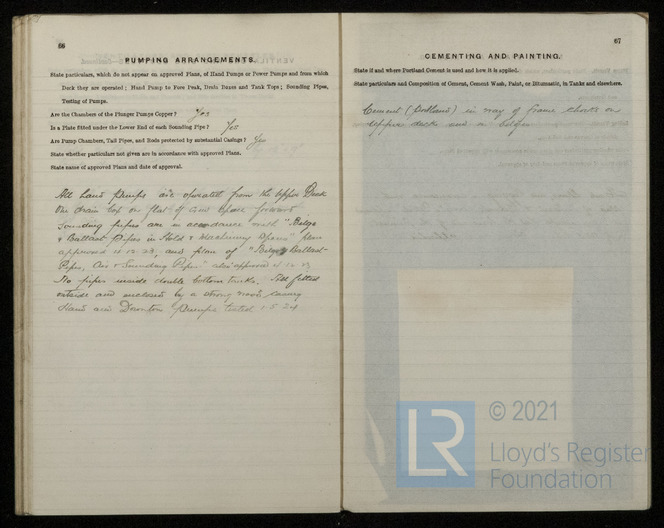 66
PUMPING ARRANGEMENTS.
State particulars, which do not appear on approved Plans, of Hand Pumps or Power Pumps and from which
Deck they are operated: Hand Pump to Fore Peak, Drain Boxes and Tank Tops; Sounding Pipes,
Testing of Pumps.
Are the Chambers of the Plunger Pumps Copper? Yes
Is a Plate fitted under the Lower End of each Sounding Pipe? Yes
Are Pump Chambers, Tail Pipes, and Rods protected by substantial Casings? Yes
State whether particulars not given are in accordance with approved Plans.
State name of approved Plans and date of approval.
All hand pumps are operated from the Upper Deck
One drain box on flat of space forward
Sounding pipes are in accordance with "Bilge
& Ballast Pipes in Hold & Machinery Spaces" plan
approved 11.12.23, and plan of "Bilge, Ballast
Pipes, Air & Sounding Pipes" also approved 11.12.23
No pipes inside double bottom tanks. All fitted
outside and enclosed by a strong wood casing
Hand Downton Pumps tested 1.5.24
67
CEMENTING AND PAINTING.
State if and where Portland Cement is used and how it is applied.
State particulars and Composition of Cement, Cement Wash, Paint, or Bitumastic, in Tanks and elsewhere.
Cement (Portland) in way of frame chocks on
upper deck and in bilges
LR
© 2021
Lloyd's Register
Foundation